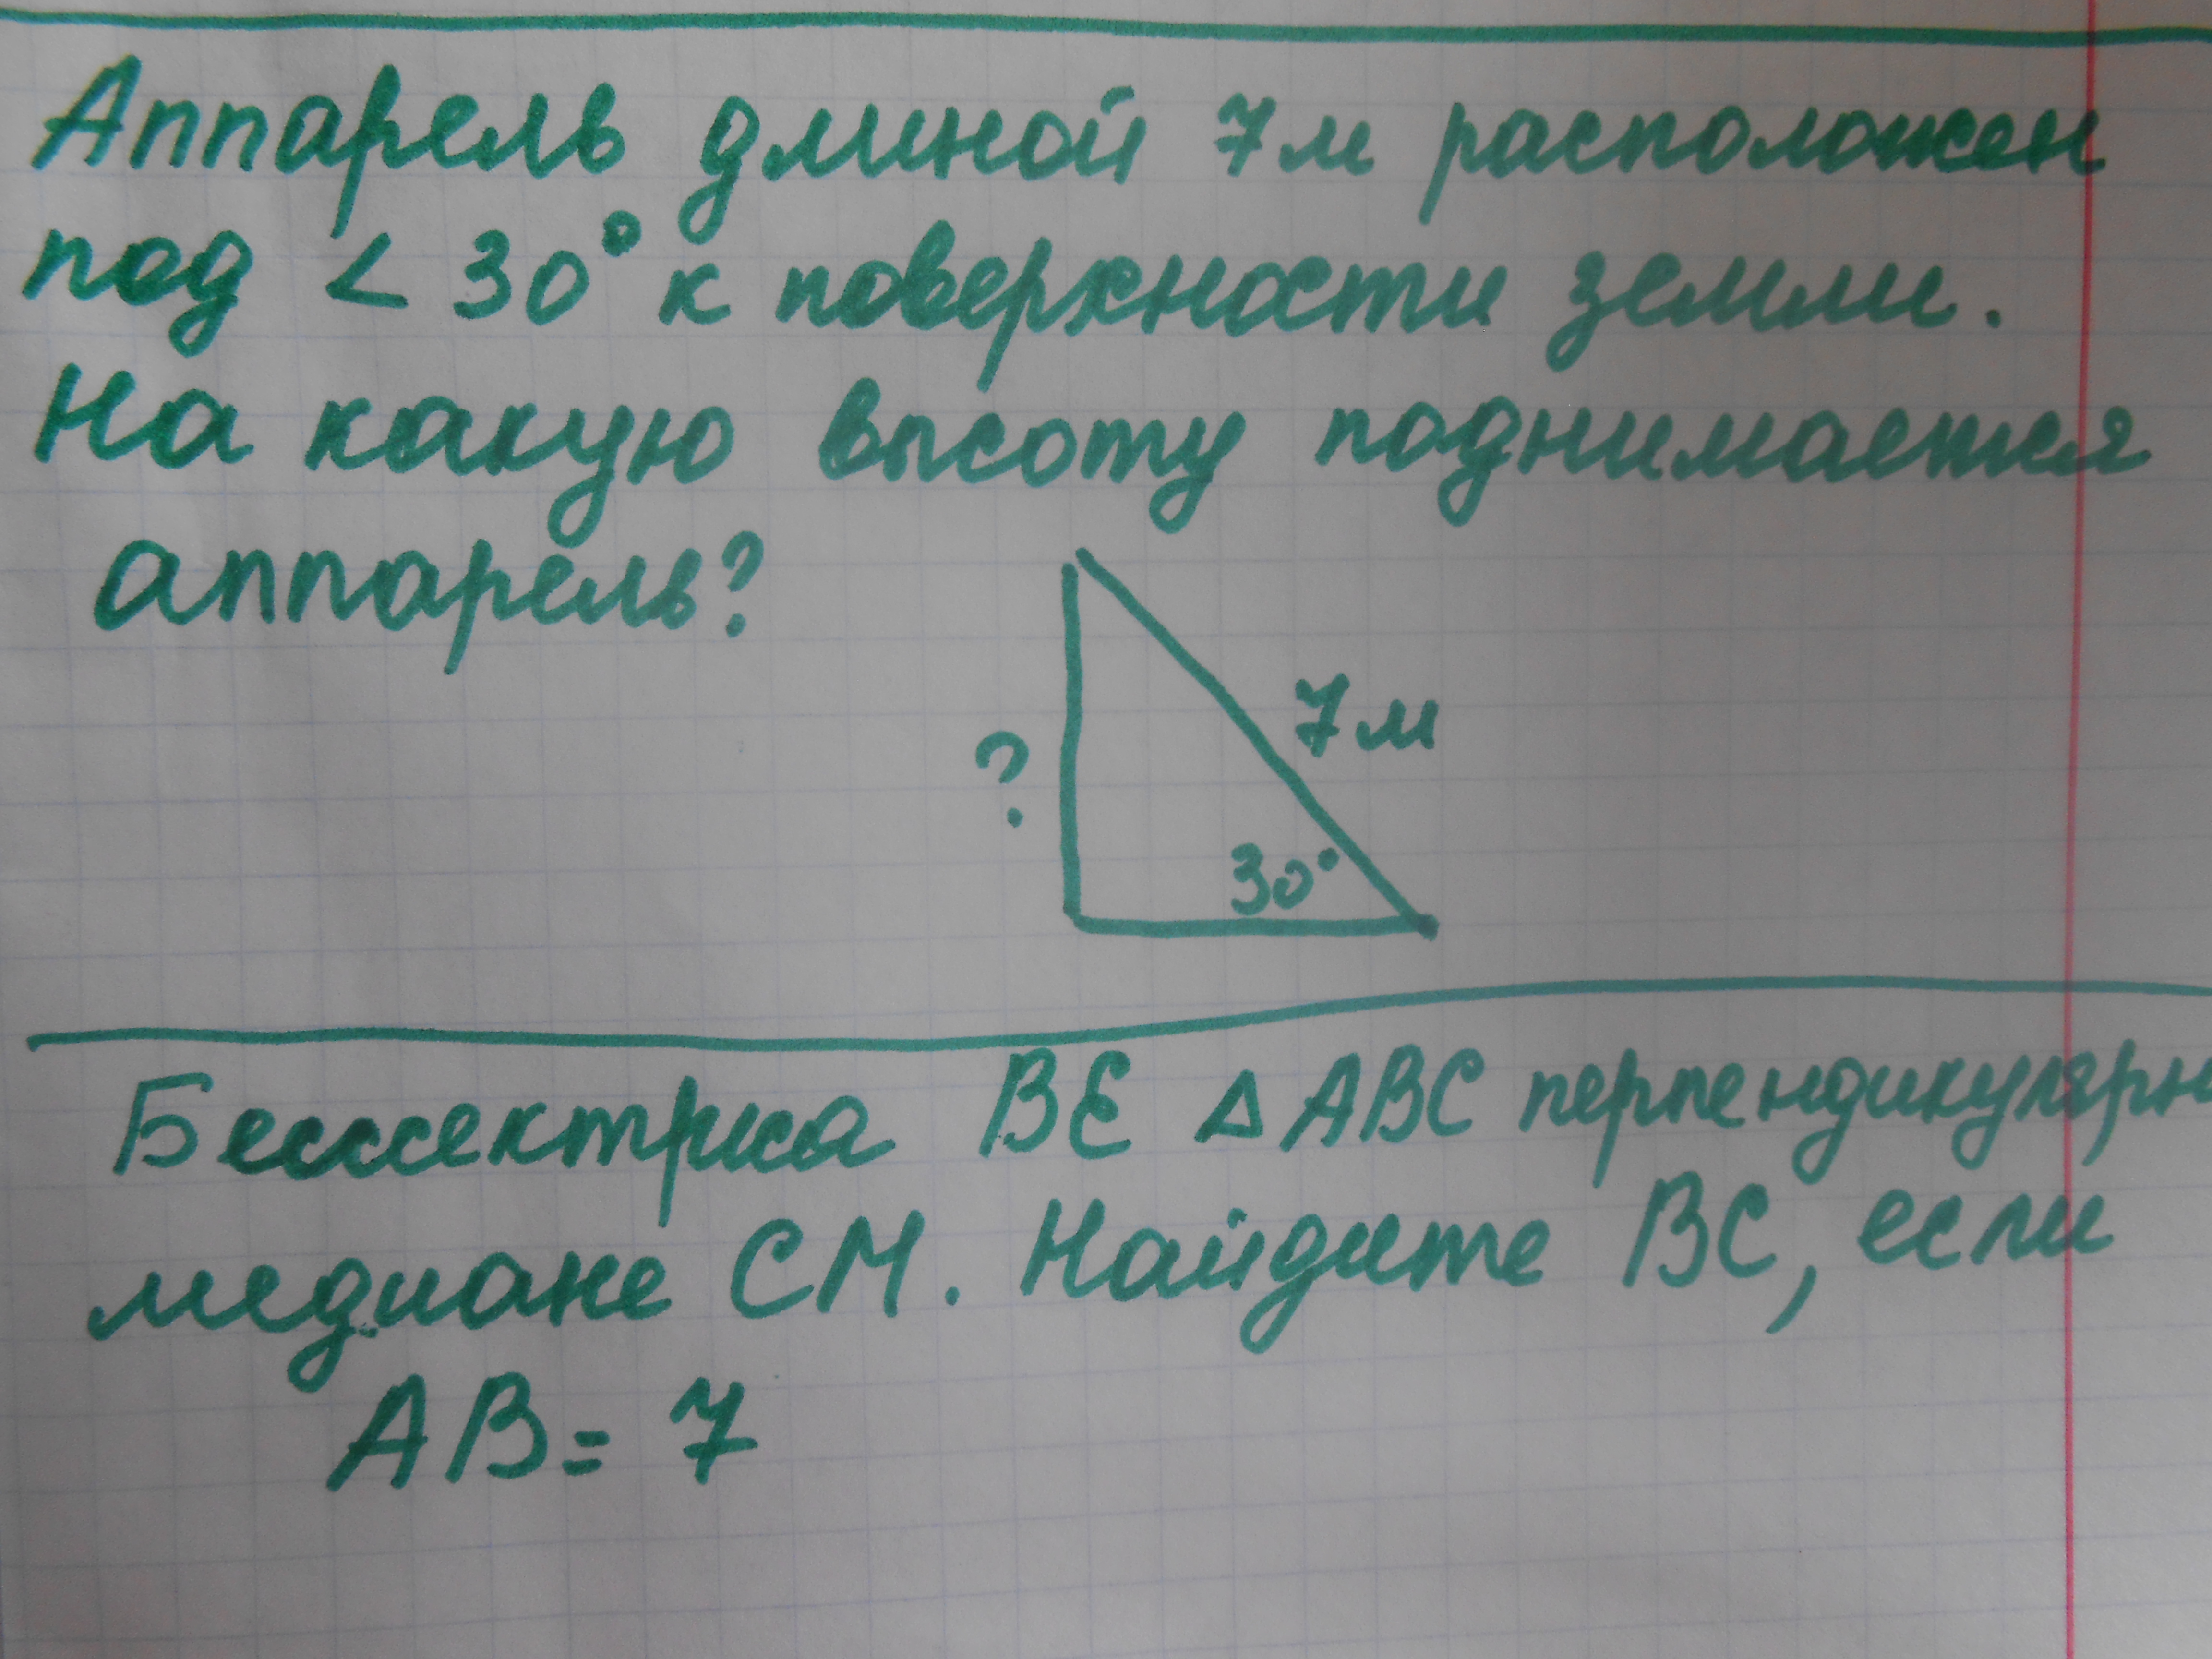 Аппарель длиной 7м расположен
под < 30° к поверхности земли.
На какую высоту поднимается
аппарель?
7м
?
30°
Бессектриса BE △ABC перпендикулярн
медиане CM. Найдите BC, если
AB = 7